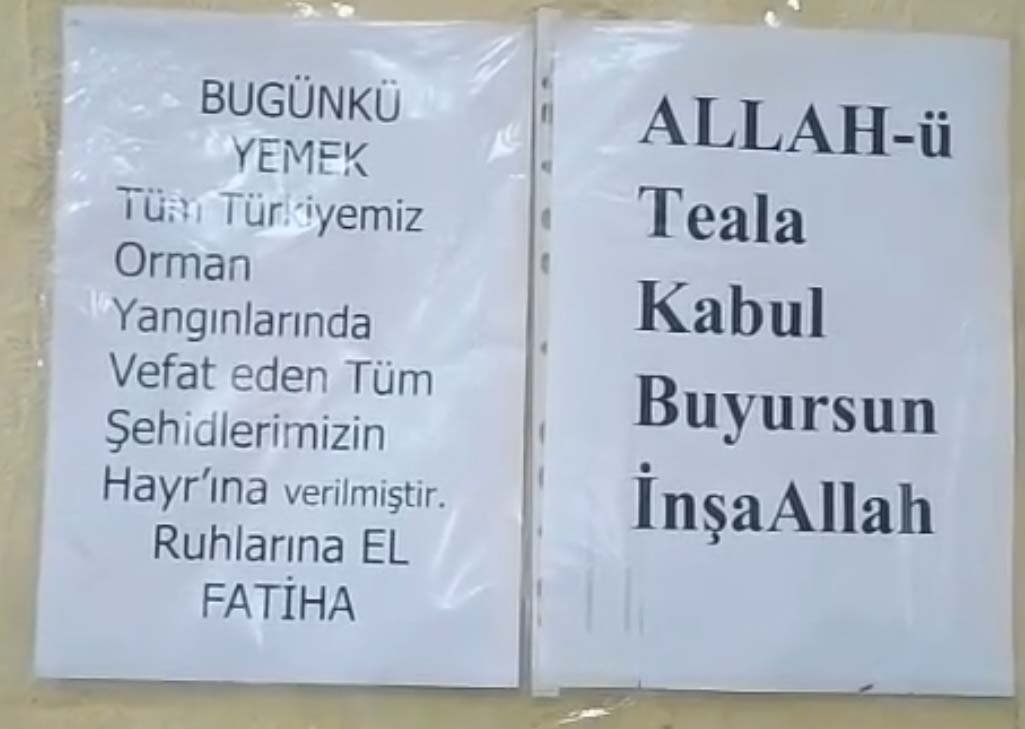 BUGÜNKÜ
YEMEK
Tüm Türkiyemiz
Orman
Yangınlarında
Vefat eden Tüm
Şehidlerimizin
Hayr’ına verilmiştir.
Ruhlarına EL
FATİHA
ALLAH-ü
Teala
Kabul
Buyursun
İnşaAllah